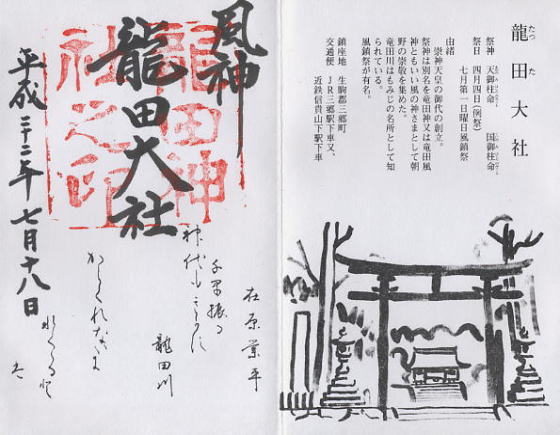 龍田大社
たつ た
祭神 天御柱命、国御柱命。
祭日 四月四日(例祭)
七月第一日曜日風鎮祭
由緒
崇神天皇の御代の創立。
祭神は別名を竜田神又は竜田風
神ともいい風の神さまとして朝
野の崇敬を集めた。
竜田川はもみじの名所として知
られている。
風鎮祭が有名。
鎮座地 生駒郡三郷町
交通便 JR三郷駅下車又、
近鉄信貴山下駅下車
風神
龍田大社
龍田神
社之印
平成二十二年七月十八日
在原業平
千早振る
龍田川